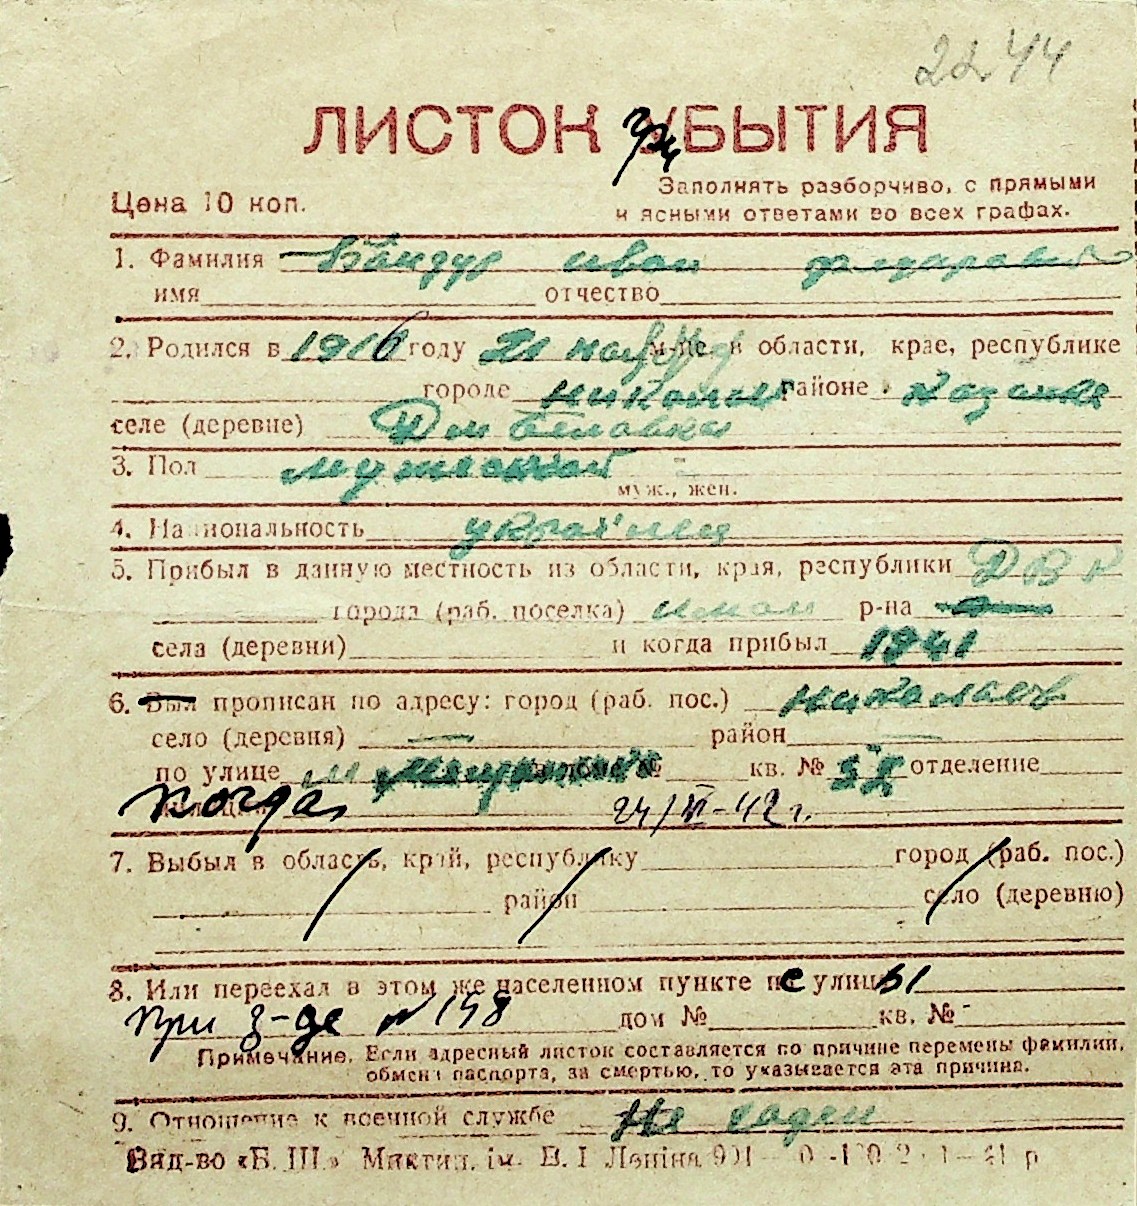 2244
ЛИСТОК при УБЫТИЯ
Цена 10 коп.
Заполнять разборчиво, с прямыми
и ясными ответами во всех графах.
1. Фамилия Бандур иван
имя отчество
2. Родился в 1916 году 21 м-це в области, крае, республике
городе районе
селе (деревне)
3. Пол мужской
муж., жен.
4. Национальность украинец
5. Прибыл в данную местность из области, края, республики ДВК
города (раб. поселка) иман р-на
села (деревни) и когда прибыл 1941
6. Был прописан по адресу: город (раб. пос.) николаев
село (деревня) — район —
по улице кв. № отделение
когда 24/VI-42 г.
7. Выбыл в область, край, республику город (раб. пос.)
район село (деревню)
8. Или переехал в этом же населенном пункте с улицы
при з-де № 198 дом № кв. №
Примечание. Если адресный листок составляется по причине перемены фамилии,
обмена паспорта, за смертью, то указывается эта причина.
9. Отношение к военной службе Не годен
Вид-во «Б. Ш.» Миктип. ім. В. І Леніна